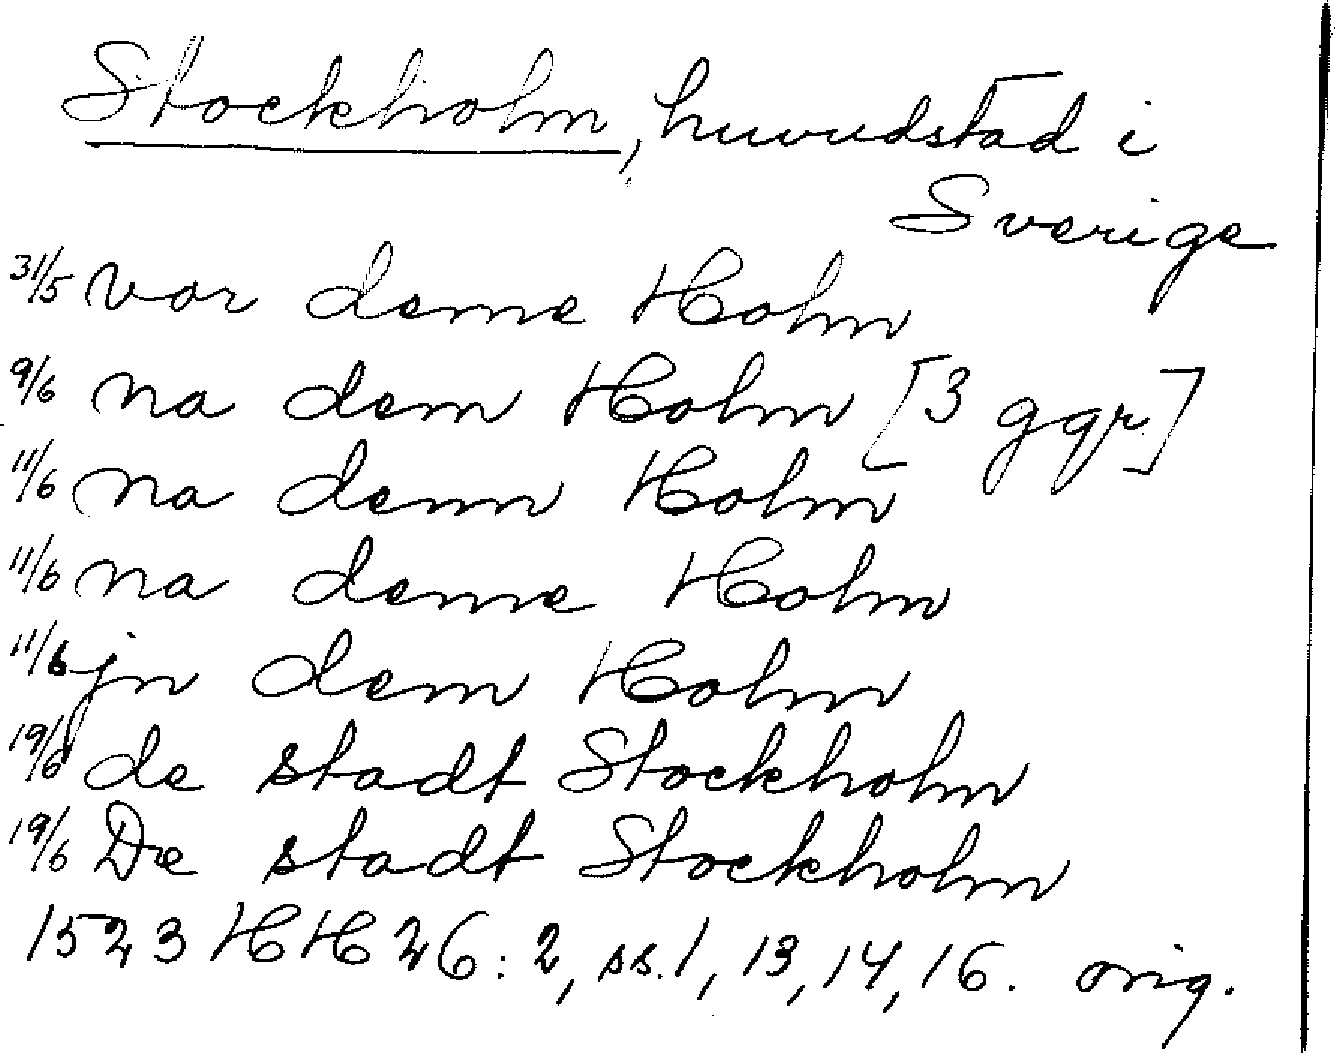 Stockholm, huvudstad i
Sverige
31/5 vor deme Holm
9/6 na dem Holm [3 ggr]
11/6 na demm Holm
11/6 na deme Holm
11/6 jn dem Holm
19/6 de stadt Stockholm
19/6 De stadt Stockholm
1523 HH 26: 2, ss. 1, 13, 14, 16. orig.